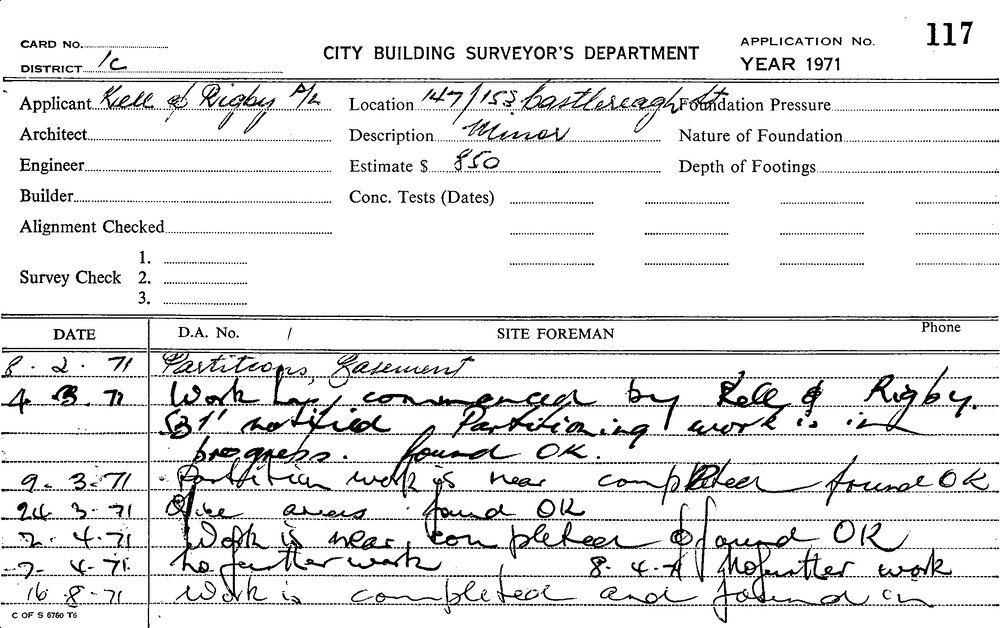 117
CARD No.
CITY BUILDING SURVEYOR'S DEPARTMENT
APPLICATION No.
DISTRICT 1c
YEAR 1971
Applicant Kell & Rigby P/L Location 147/153 Castlereagh St Foundation Pressure
Architect Description Minor Nature of Foundation
Engineer Estimate $ 850 Depth of Footings
Builder Conc. Tests (Dates)
Alignment Checked
1.
Survey Check 2.
3.
DATE D.A. No. / SITE FOREMAN Phone
8. 2. 71 Partitions, Basement
4 3. 71 Work has commenced by Kell & Rigby.
notified Partitioning work is in
progress. found OK.
9. 3. 71 Partition work is near completion found OK.
24. 3. 71 areas found OK
2. 4. 71 Work is near completion & found OK
7. 4. 71. No further work 8. 4. 71 No further work
16 8. 71 Work is completed and found in
C OF S 6750 T6